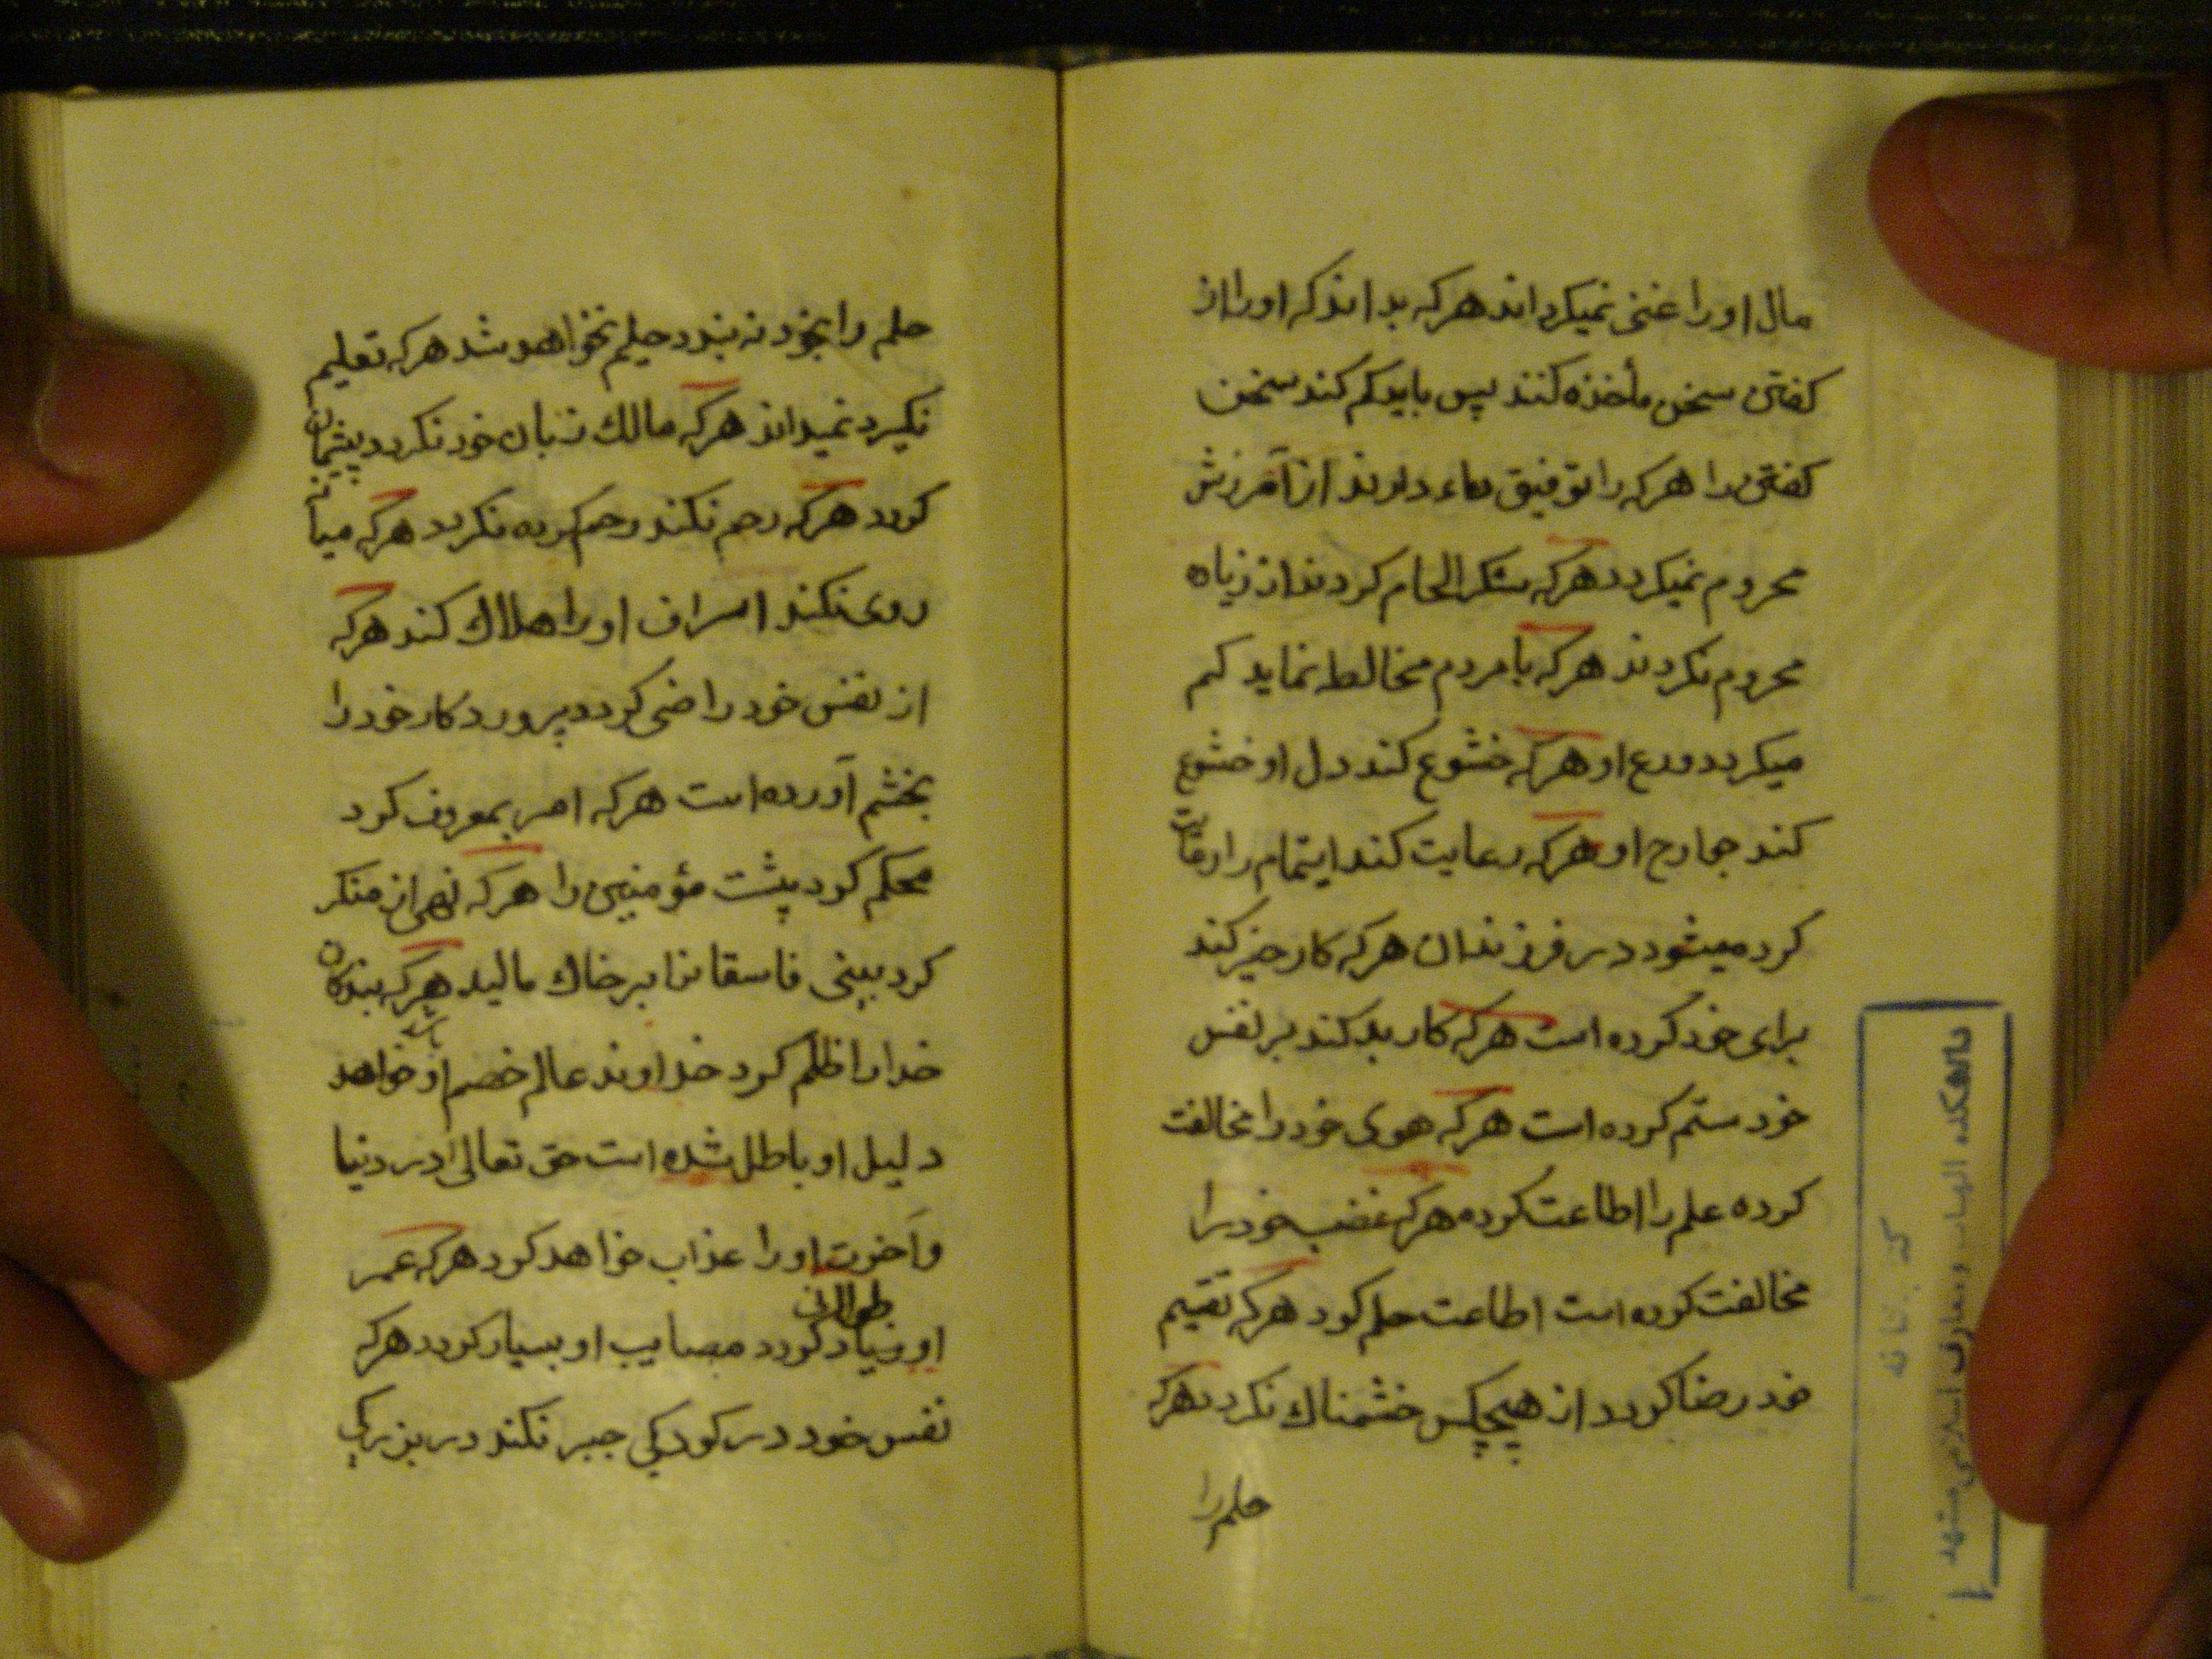 مال او را غنی نمیکرداند هرکه بداند که او را از
کفتن سخن مأخذه کنند پس باید کم کند سخن
کفتن را هرکه را توفیق دعاء دادند از آمرزش
محروم نمیکردد هرکه شکر الحام کردند از زیاه
محروم نکردند هرکه با مردم مخالطه نماید کم
میکردد ورع او هرکه خشوع کند دل او خشوع
کند جوارح او هرکه رعایت کند ایتمام را رعایت
کرده میشود در فرزندان هرکه کار خیر کند
برای خود کرده است هرکه کار بد کند بر نفس
خود ستم کرده است هرکه هوی خود را مخالفت
کرده علم را اطاعت کرده هرکه غضب خود را
مخالفت کرده است اطاعت حلم کرد هرکه تقسیم
خود رضا کردد از هیچکس خشمناك نکردد هرکه
حلم را
حلم را بخود نه بندد حلیم نخواهد شد هرکه تعلیم
نکیرد نمیداند هرکه مالك زبان خود نکردد پشیمان
کردد هرکه رحم نکند رحم کرده نکردد هرکه میانه
روی نکند اسراف او را هلاك کند هرکه
از نفس خود راضی کردد پروردکار خود را
بخشم آورده است هرکه امر بمعروف کرد
محکم کرد پشت مؤمنین را هرکه نهی از منکر
کرد بینی فاسقانرا بر خاك مالید هرکه بندکان
خدا را ظلم کرد خداوند عالم خصم او خواهد
دلیل او باطل شده است حق تعالی در دنیا
و آخرت او را عذاب خواهد کرد هرکه عمر
طولانی
او کردد مصایب او بسیار کردد هرکه
نفس خود در کودکی جبر نکند در بزرکی
دانشکده الهیات و معارف اسلامی مشهد
کتابخانه